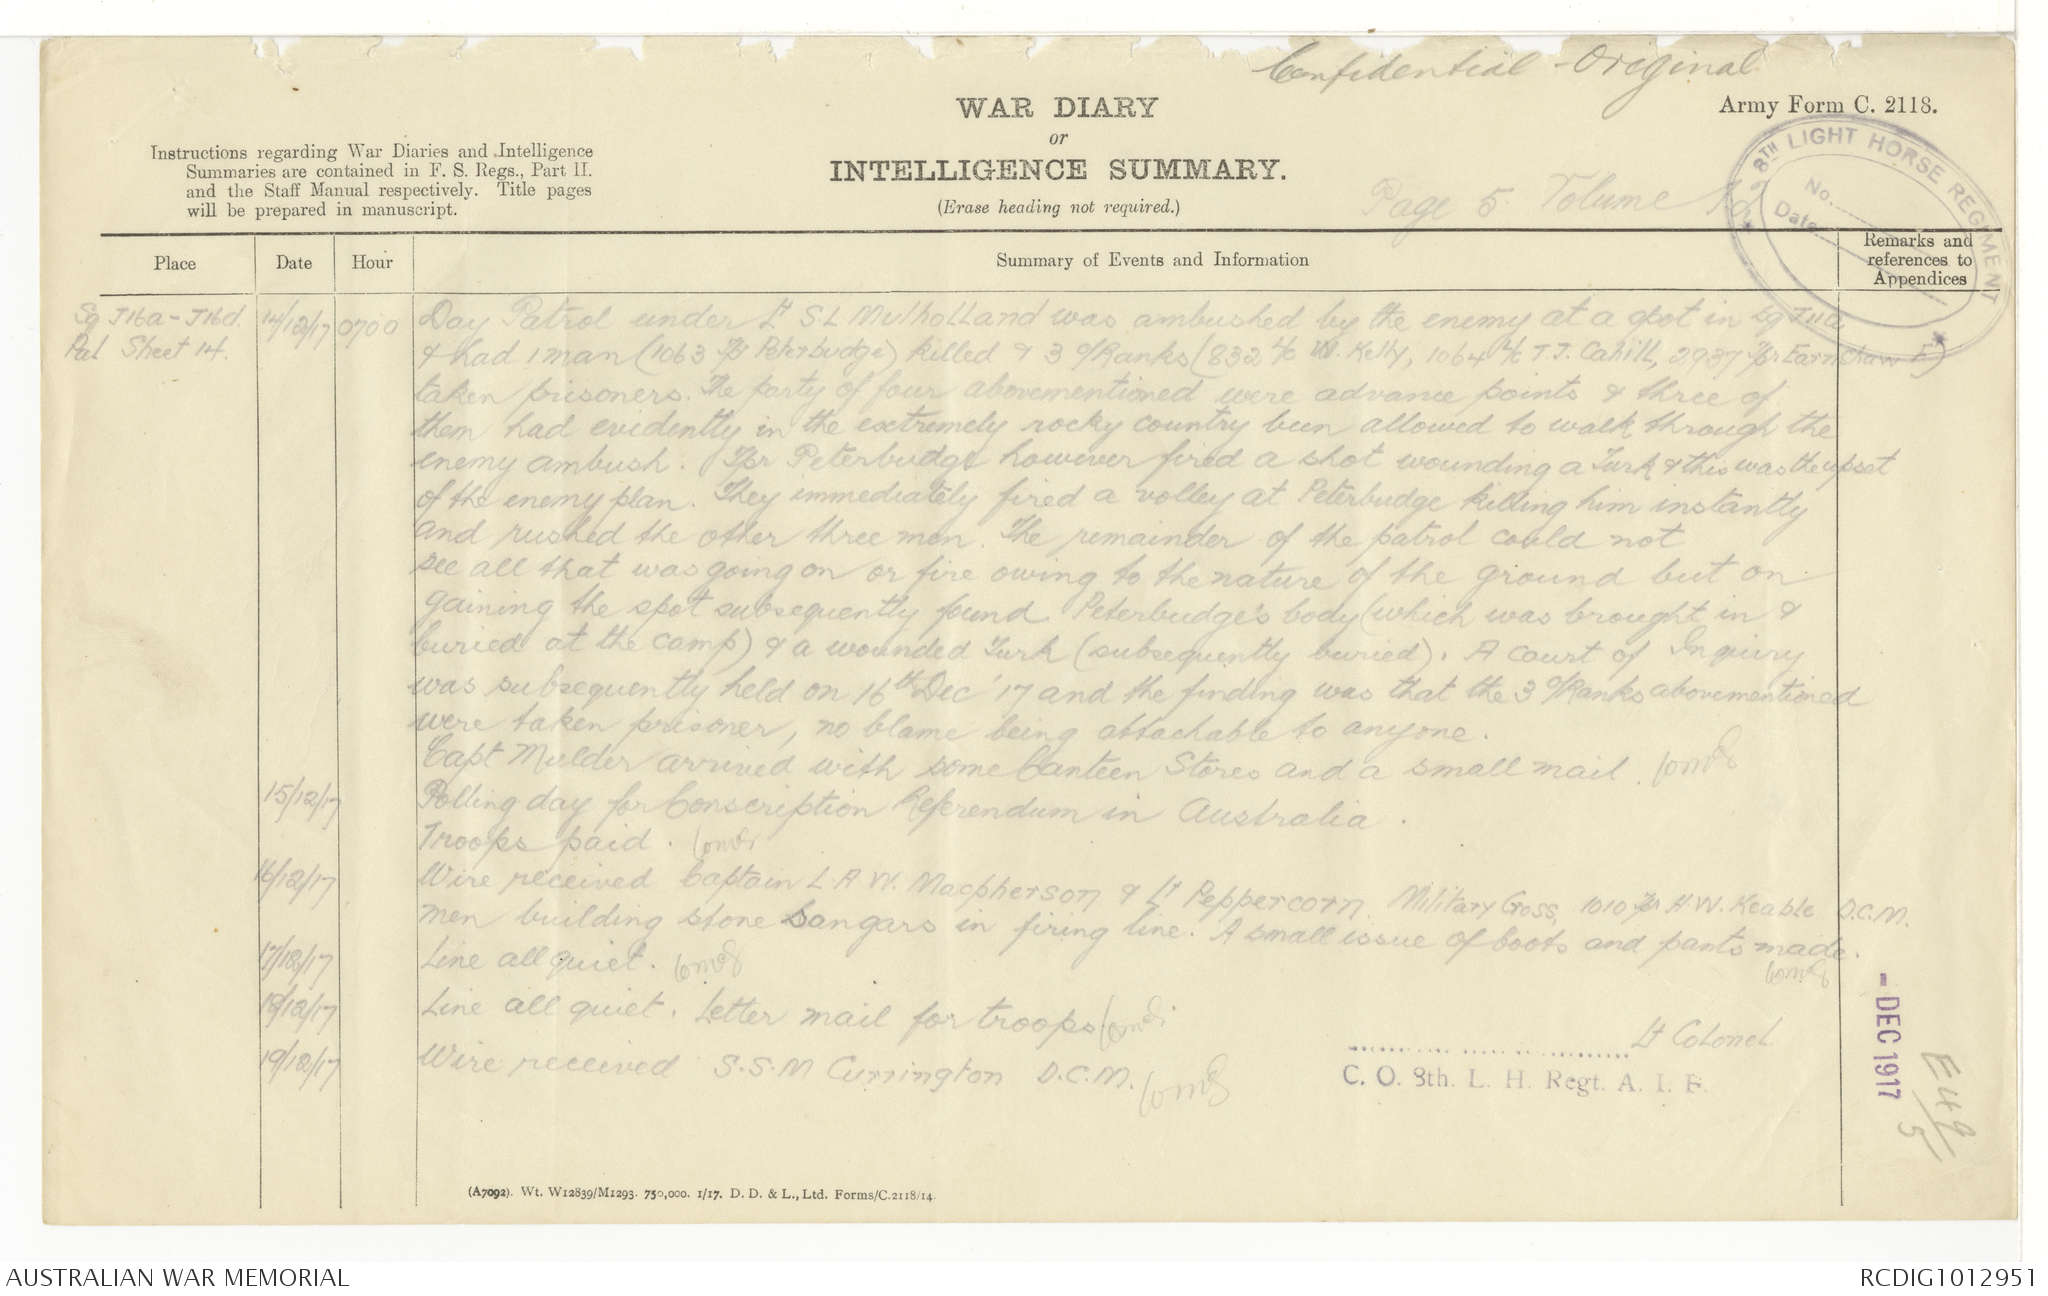 Confidential - Original
WAR DIARY
or
INTELLIGENCE SUMMARY.
(Erase heading not required.)
Army Form C. 2118.
Instructions regarding War Diaries and Intelligence
Summaries are contained in F. S. Regs., Part II.
and the Staff Manual respectively. Title pages
will be prepared in manuscript.
Page 5. Volume
8TH LIGHT HORSE REGIMENT
No.
Date
Place
Date
Hour
Summary of Events and Information
Remarks and
references to
Appendices
Sq J16a - J16d.
Pal Sheet 14.
14/12/17 0700 Day Patrol under Lt S.L Mulholland was ambushed by the enemy at a spot in Sq J11a
& had 1 man (1063 Tpr Peterbudge) killed & 3 O/Ranks (832 L/C W. Kelly, 1064 L/C T.J. Cahill, 2937 Tpr Earnshaw F)
taken prisoners. The party of four abovementioned were advance points & three of
them had evidently in the extremely rocky country been allowed to walk through the
enemy ambush. Tpr Peterbudge however fired a shot wounding a Turk & this was the upset
of the enemy plan. They immediately fired a volley at Peterbudge killing him instantly
and rushed the other three men. The remainder of the patrol could not
see all that was going on or fire owing to the nature of the ground but on
gaining the spot subsequently found Peterbudge's body (which was brought in &
buried at the camp) & a wounded Turk (subsequently buried). A court of Inquiry
was subsequently held on 16th Dec '17 and the finding was that the 3 O/Ranks abovementioned
were taken prisoner, no blame being attachable to anyone.
Capt Mulder arrived with some Canteen Stores and a small mail.
15/12/17 Polling day for Conscription Referendum in Australia.
Troops paid.
16/12/17 Wire received Captain L.A.W. Macpherson & Lt Peppercorn Military Cross, 1010 Tpr H.W. Keable D.C.M.
men building stone Sangars in firing line. A small issue of boots and pants made.
17/12/17 Line all quiet.
18/12/17 Line all quiet. Letter mail for troops
19/12/17 Wire received S.S.M Currington D.C.M.
Lt Colonel
C. O. 8th. L. H. Regt. A. I. F.
- DEC 1917
E 49/5
(A7092). Wt. W12839/M1293. 750,000. 1/17. D. D. & L., Ltd. Forms/C.2118/14.
AUSTRALIAN WAR MEMORIAL
RCDIG1012951